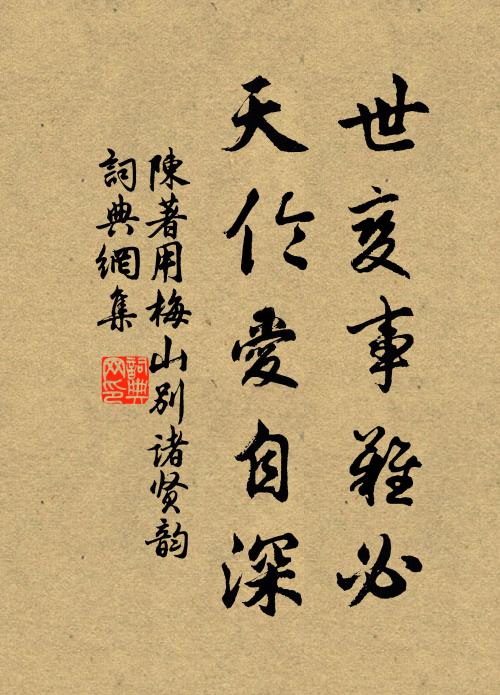 世变事難必
天伦愛自深
陳著用梅山别诸贤韵
詞典網集
詞典网印